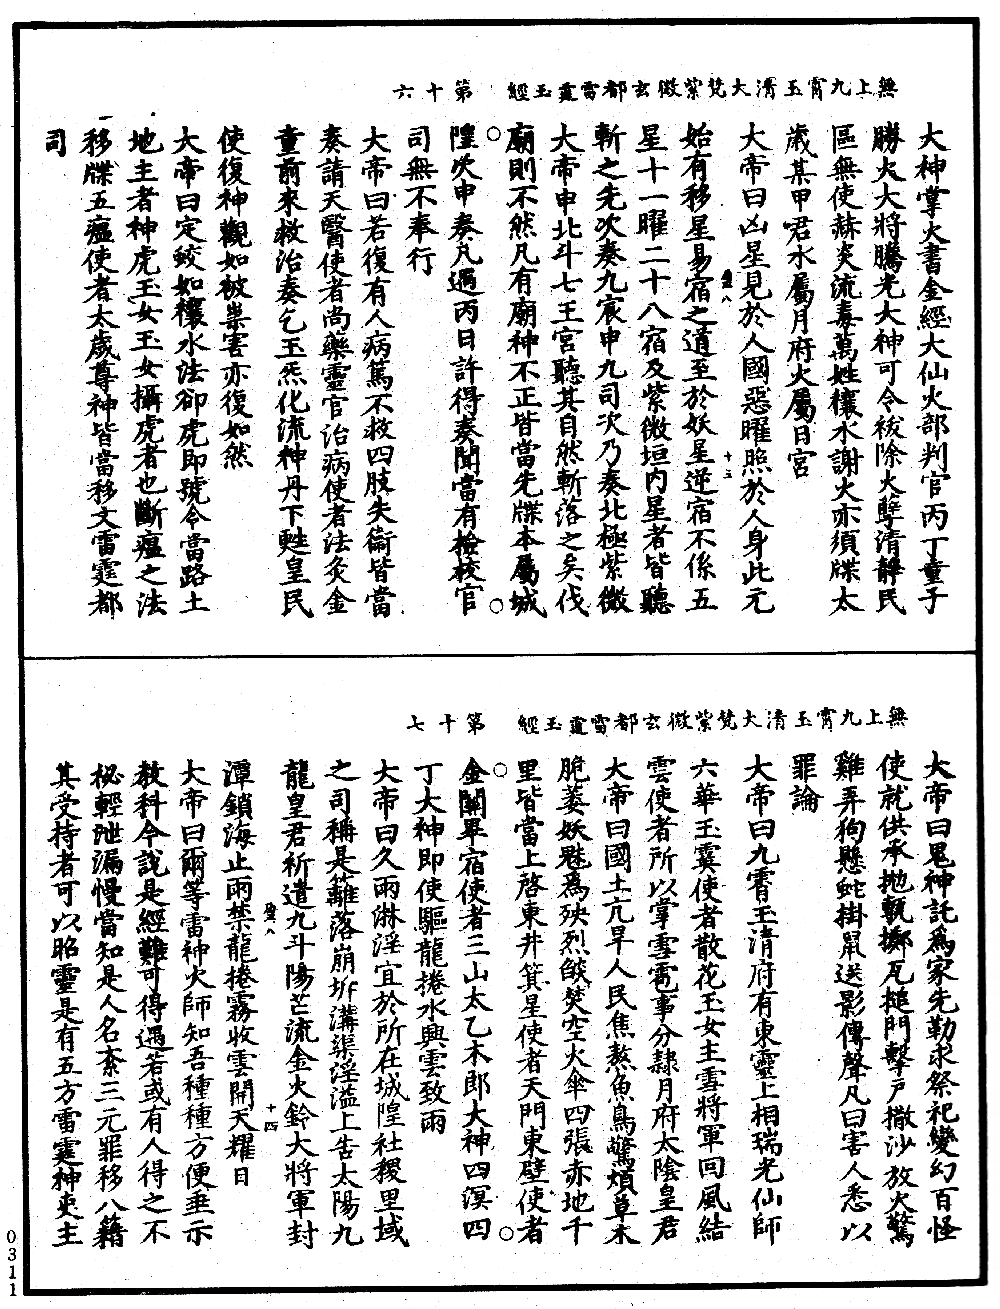 無上九霄玉清大梵紫微玄都雷霆玉經　第十六
大神掌火書金經大仙火部判官丙丁童子
勝火大將騰光大神可令祓除火孽清靜民
區無使赫炎流毒萬姓禳水謝火亦須牒太
歲某甲君水屬月府火屬日宮
大帝曰凶星見於人國惡曜照於人身此元
始有移星易宿之道至於妖星逆宿不係五
星十一曜二十八宿及紫微垣內星者皆聽
斬之先次奏九宸申九司次乃奏北極紫微
大帝申北斗七王宮聽其自然斬落之矣伐
廟則不然凡有廟神不正皆當先牒本屬城
隍次申奏凡遇丙日許得奏聞當有檢校官
司無不奉行
大帝曰若復有人病篤不救四肢失衛皆當
奏請天醫使者尚藥靈官治病使者法灸金
童前來救治奏乞玉炁化流神丹下甦皇民
使復神觀如被祟害亦復如然
大帝曰定蛟如禳水法卻虎即號令當路土
地主者神虎玉女玉女攝虎者也斷瘟之法
移牒五瘟使者太歲尊神皆當移文雷霆都
司
八
十三
無上九霄玉清大梵紫微玄都雷霆玉經　第十七
大帝曰鬼神託為家先勒求祭祀變幻百怪
使就供承拋甎擲瓦搥門擊戶撒沙放火驚
雞弄狗懸蛇掛鼠送影傳聲凡曰害人悉以
罪論
大帝曰九霄玉清府有東靈上相瑞光仙師
六華玉霙使者散花玉女主雪將軍回風結
雲使者所以掌雪雹事分隸月府太陰皇君
大帝曰國土亢旱人民焦熬魚鳥驚煩草木
脆萎妖魃為殃烈燄焚空火傘四張赤地千
里皆當上啓東井箕星使者天門東壁使者
金闕畢宿使者三山太乙木郎大神四溟四
丁大神即使驅龍捲水興雲致雨
大帝曰久雨淋淫宜於所在城隍社稷里域
之司稱是籬落崩坼溝渠淫溢上告太陽九
龍皇君祈遣九斗陽芒流金火鈴大將軍封
潭鎖海止雨禁龍捲霧收雲開天耀日
大帝曰爾等雷神火師知吾種種方便垂示
教科今說是經難可得遇若或有人得之不
祕輕泄漏慢當知是人名紊三元罪移八籍
其受持者可以昭靈是有五方雷霆神吏主
八
十四
0311